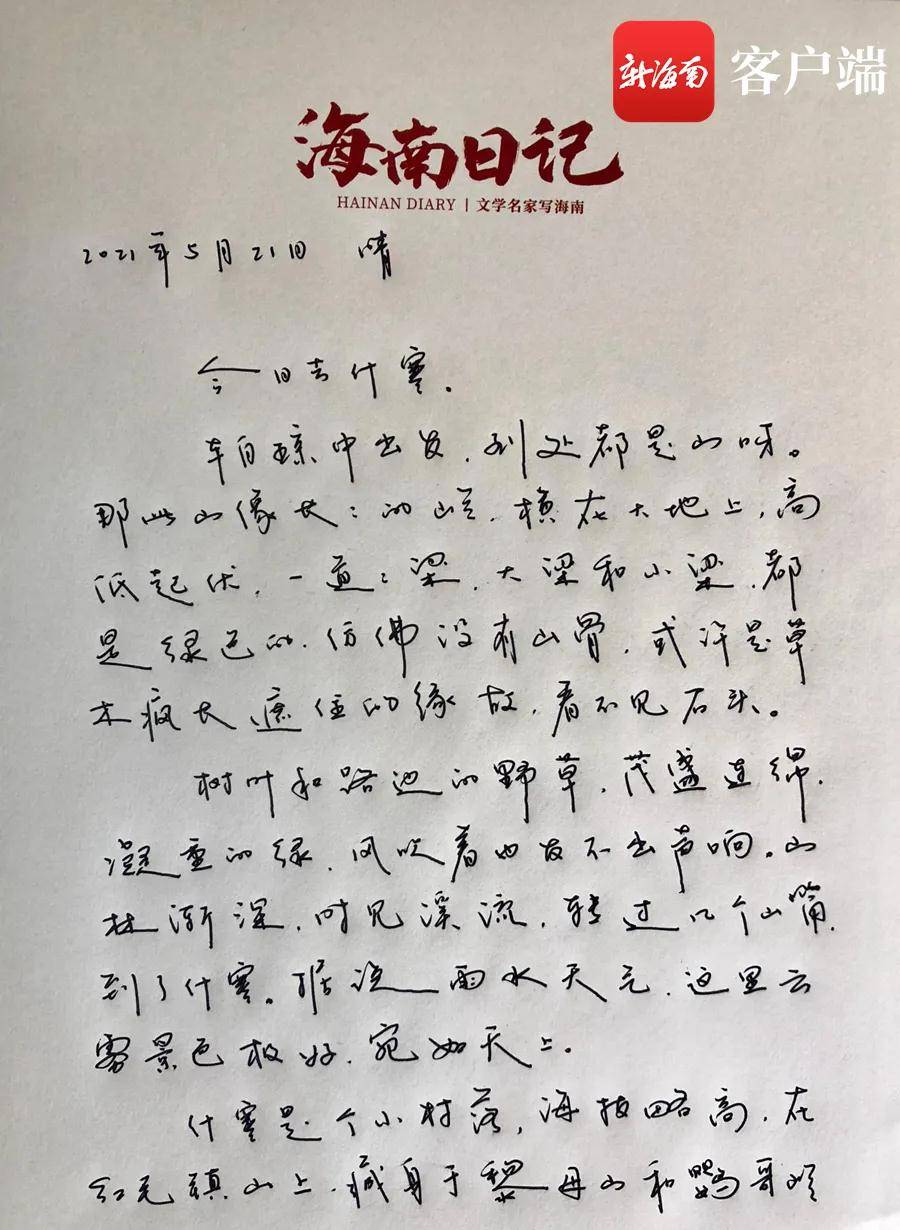 新海南 客户端
海南日记
HAINAN DIARY | 文学名家写海南
2021年5月21日 晴
今日去什寒.
车自琼中出发,到处都是山呀。
那些山像长:的 横在大地上,高
低起伏,一道:梁,大梁和小梁,都
是绿色的,仿佛没有山骨,或许是草
木疯长遮住的缘故,看不见石头。
树叶和路边的野草,茂盛连绵,
凝重的绿,风吹着也发不出声响。山
林渐深,时见溪流,转过几个山 ,
到了什寒。据说雨水天气,这里云
雾景色极好,宛如天上。
什寒是个小村落,海拔略高,在
红毛镇山上,藏身于黎母山和鹦哥岭